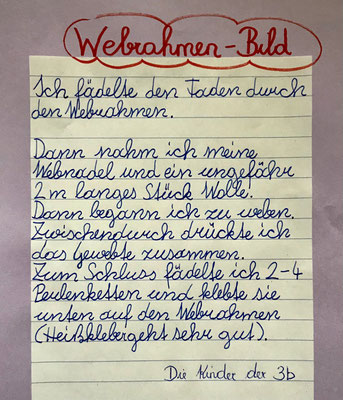 Webrahmen-Bild
Ich fädelte den Faden durch
den Webrahmen.
Dann nahm ich meine
Webnadel und ein ungefähr
2 m langes Stück Wolle.
Dann begann ich zu weben.
Zwischendurch drückte ich
das Gewebte zusammen.
Zum Schluss fädelte ich 2-4
Perlenketten und klebte sie
unten auf den Webrahmen
(Heißklebergeht sehr gut).
Die Kinder der 3b